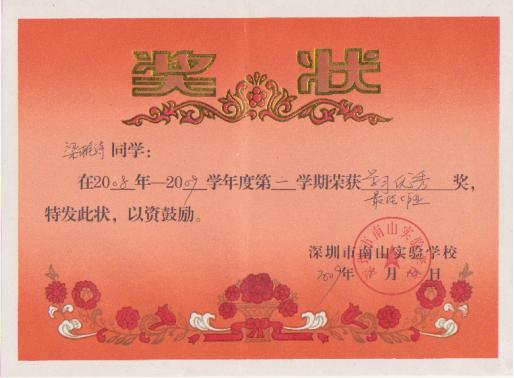 奖状
同学:
在2008年—2009学年度第二学期荣获学习优秀奖,
特发此状,以资鼓励。
深圳市南山实验学校
2009年 月 日
深圳市南山实验学校